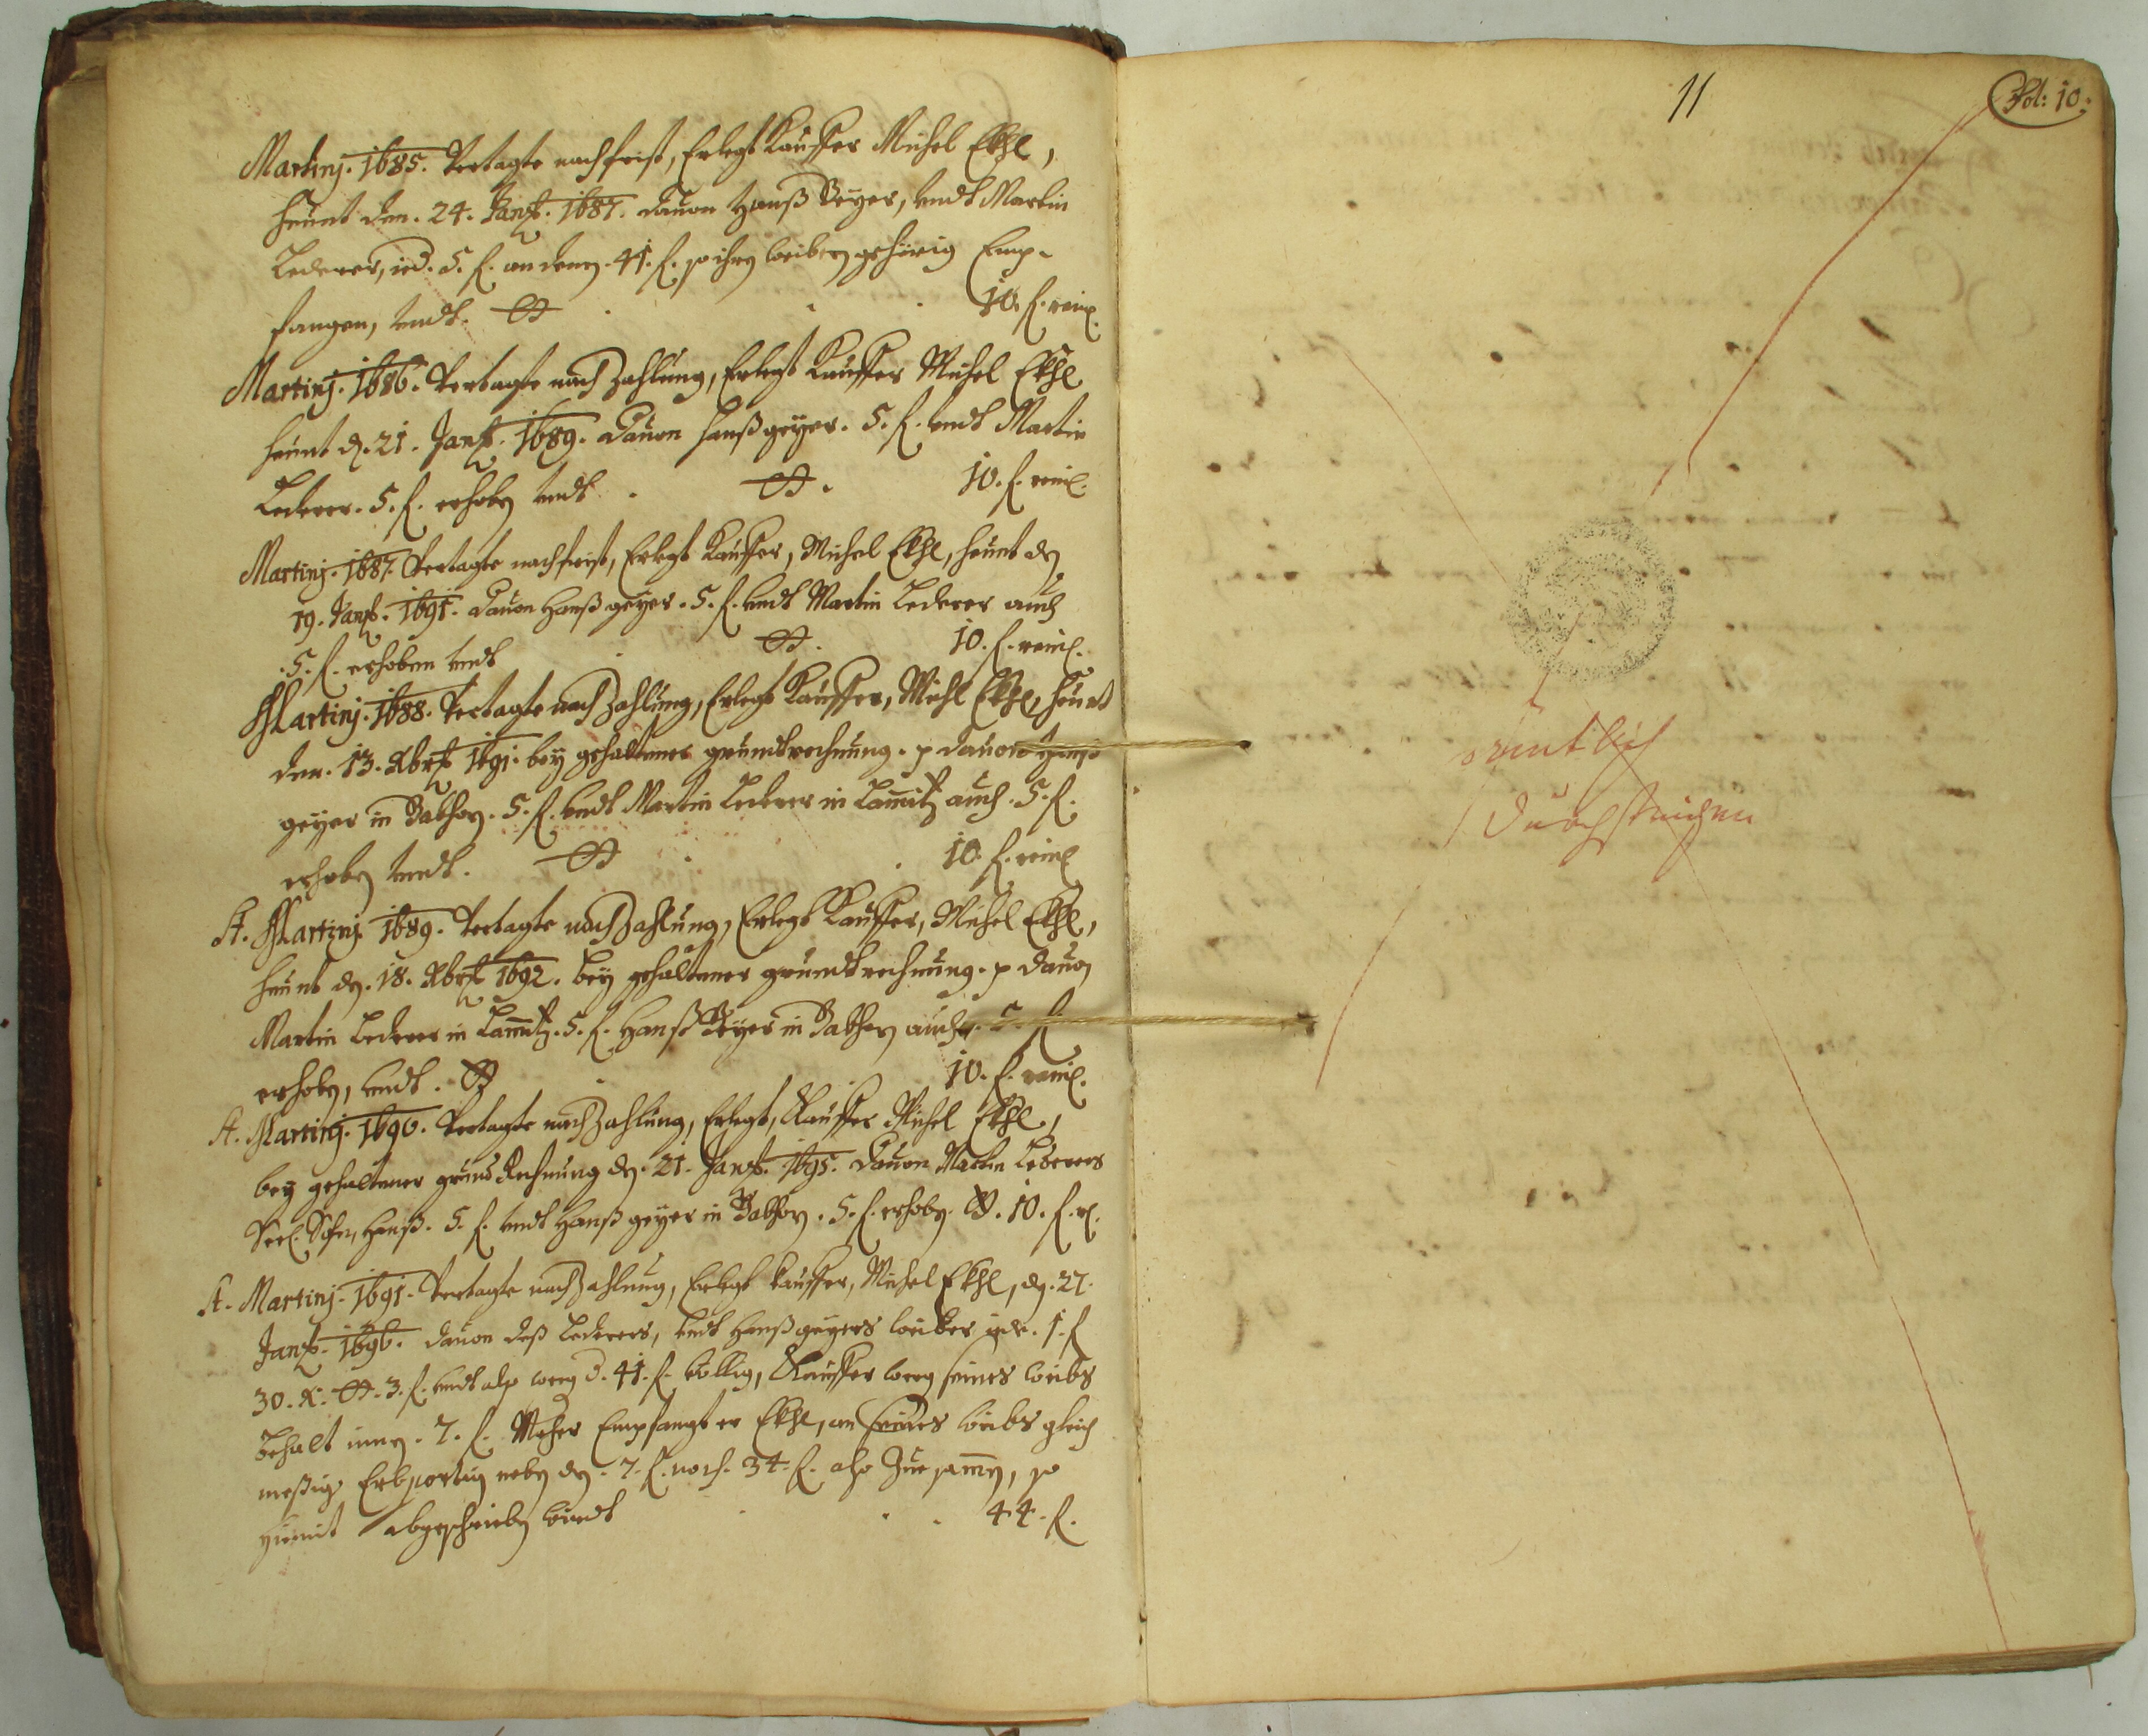 Martinj. 1685. Vertagte nachfrist, Erlegt Kauffer Michel Ekhl,
heunt den. 24. Jan. 1687. dauon Hanß Geyer, vndt Martin
Lederer, ied. 5. f. an denen. 41. f. so ihren weibern gehörig Emp-
fangen, vndt. 10. f. reinl.
Martinj. 1686. Vertagte nach Zahlung, Erlegt Kauffer Michel Ekhl
heunt den. 21. Jan. 1689. dauon Hanß geyer. 5. f. vndt Martin
Lederer. 5. f. erhoben vndt. 10. f. reinl.
Martinj. 1687. Vertagte nachfrist, Erlegt Kauffer, Michel Ekhl, heunt den
19. Jan. 1691. dauon Hanß geyer. 5. f. vndt Martin Lederer auch
.5. f. erhoben vndt 10. f. reinl.
Martinj. 1688. Vertagte nach Zahlung, Erlegt Kauffer, Michl Ekhl, heunt
den. 13. Xbris 1691. bey gehaltener grundtrechnung. p dauon Hanß
geyer in. 5. f. vndt Martin Lederer in auch. 5. f.
erhoben vndt. 10. f. reinl
A. Martinj. 1689. Vertagte nach Zahlung, Erlegt Kauffer, Michel Ekhl,
heunt den. 18. Xbris 1692. bey gehaltener grundtrechnung. p dauon
Martin Lederer in. 5. f. Hanß Geyer in auch. 5. f.
erhoben, vndt. 10. f. reinl.
A. Martinj. 1690. Vertagte nach Zahlung, Erlegt, Kauffer Michel Ekhl,
bey gehaltener grund Rechnung den. 21. Jan. 1695. dauon Martin Lederers
Seel. Sohn, Hanß. 5. f. vndt Hanß geyer in. 5. f. erhoben. 10. f. rl.
A. Martinj. 1691. Vertagte nach Zahlung, Erlegt Kauffer, Michel Ekhl, den. 27.
Jan. 1696. dauon deß Lederers, vndt Hanß geyers weiber iede. 1. f
30. x. 3. f. vndt also weg d. 41. f. völlig, Kauffer weg seines weibs
Behalt innen. 7. f. Mehr Empfangt er Ekhl, an seines weibs gleich
meßig Erbportion neben den. 7. f. noch. 34. f. also Zue samen, so
hiemit abgeschrieben wirdt 44. f.
11
Fol: 10:
sämtlich
durchstrichen